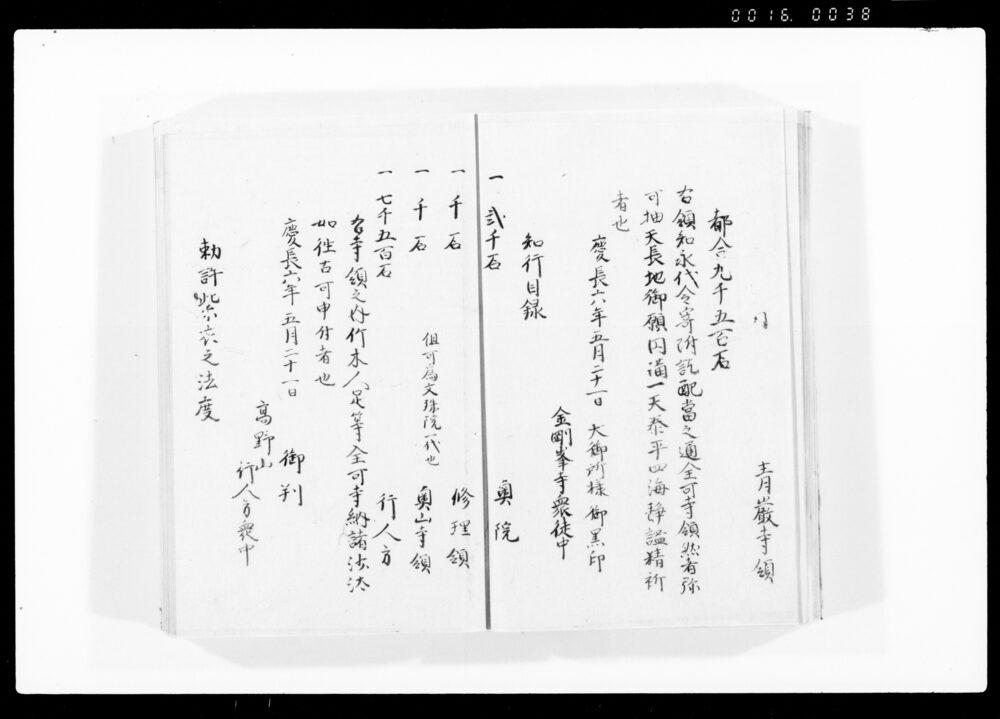 0016. 0038
青巖寺領
都合九千五百石
右領知永代令寄附訖配當之通全可寺領然者弥
可抽天長地御願円滿一天泰平四海静謐精祈
者也
慶長六年五月二十一日 大御所様御黒印
金剛峯寺衆徒中
知行目録
一 弐千石 奥院
一 千石 修理領
一 千石 但可為文殊院一代也 奥山寺領
一 七千五百石 行人方
右寺領之内竹木人足等全可寺納諸法汰
如往古可申付者也
慶長六年五月二十一日 御判
高野山
行人方衆中
勅許紫衣之法度